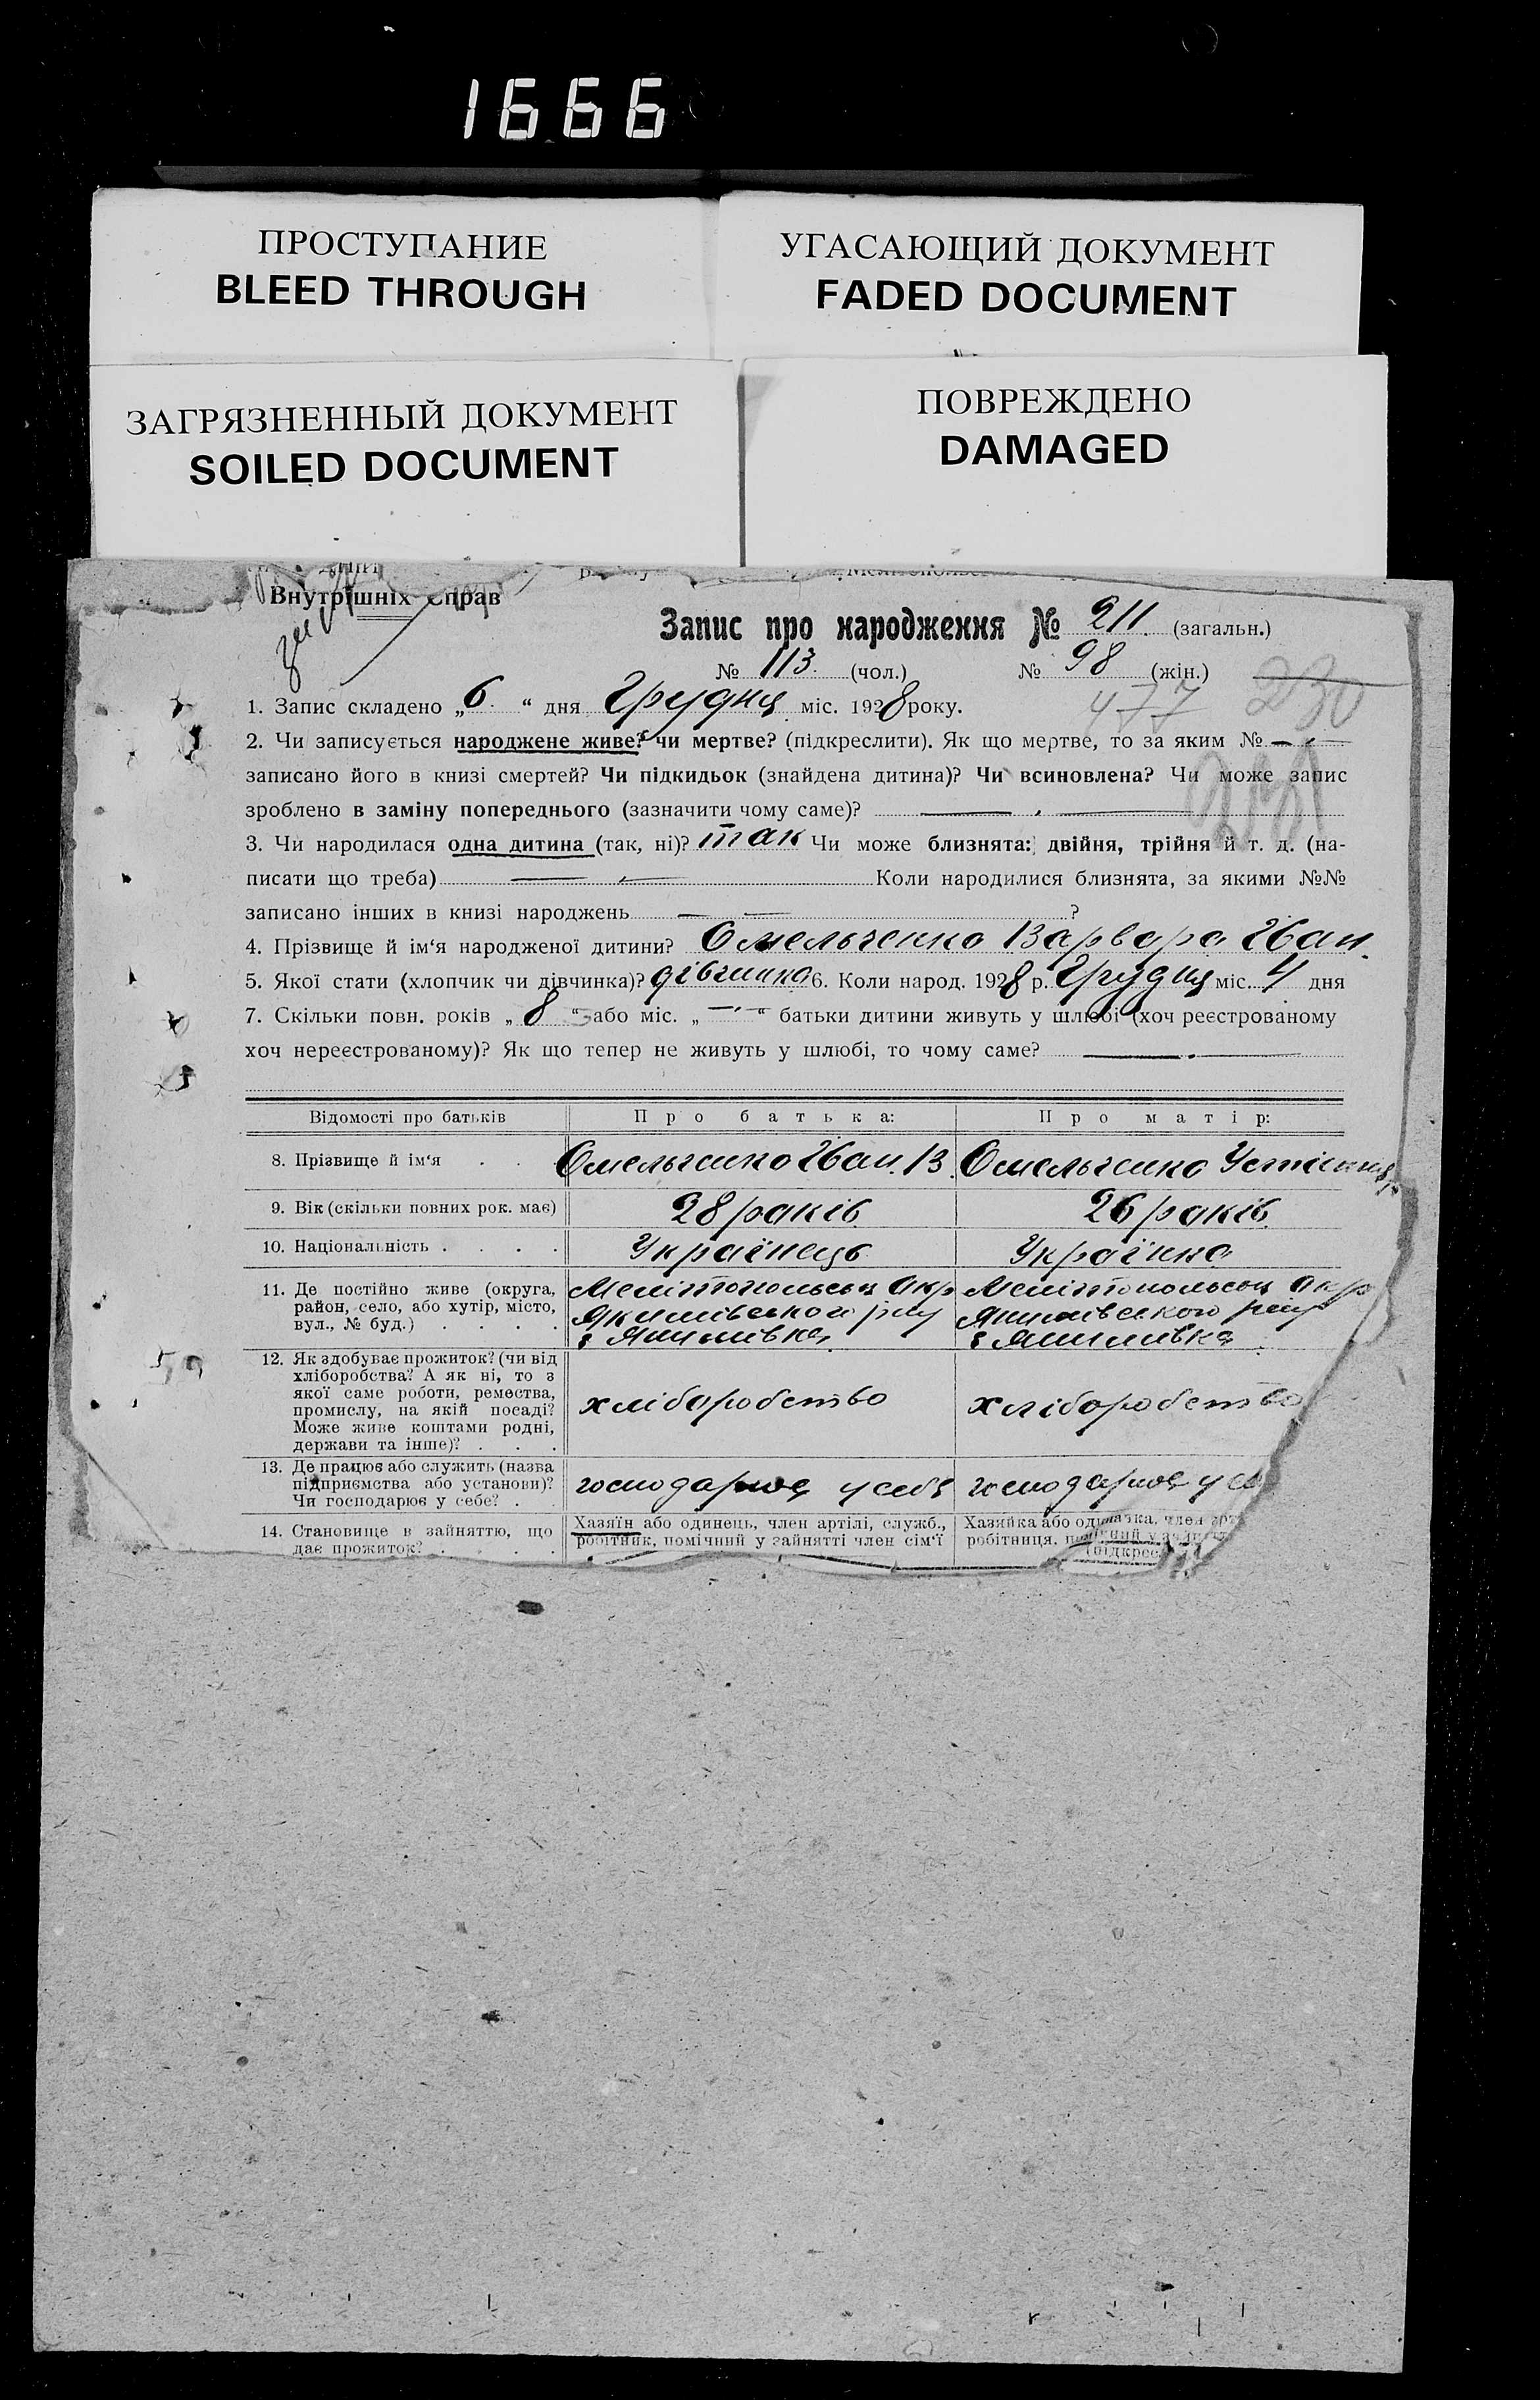 1666
ПРОСТУПАНИЕ
BLEED THROUGH
УГАСАЮЩИЙ ДОКУМЕНТ
FADED DOCUMENT
ЗАГРЯЗНЕННЫЙ ДОКУМЕНТ
SOILED DOCUMENT
ПОВРЕЖДЕНО
DAMAGED
Внутрішніх Справ
Запис про народження № 211 (загальн.)
№ 113 (чол.) № 98 (жін.)
477 230
1. Запис складено „6“ дня Грудня міс. 1928 року.
2. Чи записується народжене живе? чи мертве? (підкреслити). Як що мертве, то за яким № —
записано його в книзі смертей? Чи підкидьок (знайдена дитина)? Чи всиновлена? Чи може запис
зроблено в заміну попереднього (зазначити чому саме)? —
3. Чи народилася одна дитина (так, ні)? так Чи може близнята: двійня, трійня й т. д. (на-
писати що треба) — Коли народилися близнята, за якими №№
записано інших в книзі народжень — ?
4. Прізвище й ім‘я народженої дитини? Омельченко Варвара Іван.
5. Якої стати (хлопчик чи дівчинка)? дівчинка 6. Коли народ. 1928 р. Грудня міс. 4 дня
7. Скільки повн. років „8“ або міс. „—“ батьки дитини живуть у шлюбі (хоч реєстрованому
хоч нереєстрованому)? Як що тепер не живуть у шлюбі, то чому саме? —
Відомості про батьків Про батька: Про матір:
8. Прізвище й ім‘я Омельченко Іван. В. Омельченко Устіння
9. Вік (скільки повних рок. має) 28 років 26 років
10. Національність Українець Українка
11. Де постійно живе (округа, Мелітопольська окр Мелітопольська окр
район, село, або хутір, місто, Якимівського р-ну Якимівського р-ну
вул., № буд.) с Якимівка с Якимівка
12. Як здобуває прожиток? (чи від
хліборобства? А як ні, то з
якої саме роботи, ремества,
промислу, на якій посаді? хліборобство хліборобство
Може живе коштами родні,
держави та інше)?
13. Де працює або служить (назва
підприємства або установи)? господарює у себе господарює у се
Чи господарює у себе?
14. Становище в зайняттю, що Хазяїн або одинець, член артілі, служб., Хазяйка або одиначка, член
дає прожиток? робітник, помічний у зайнятті член сім‘ї робітниця,
(підкрес